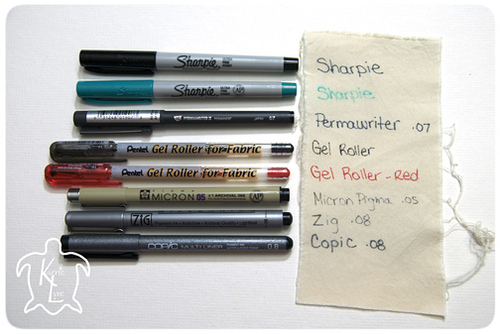 Sharpie
Sharpie
PERMAWRITER II
07
Pentel Gel Roller for Fabric
Pentel Gel Roller for Fabric
MICRON 05 ARCHIVAL INK
ZIG
COPIC MULTI LINER 0.8
Sharpie
Sharpie
Permawriter .07
Gel Roller
Gel Roller - Red
Micron Pigma .05
Zig .08
Copic .08